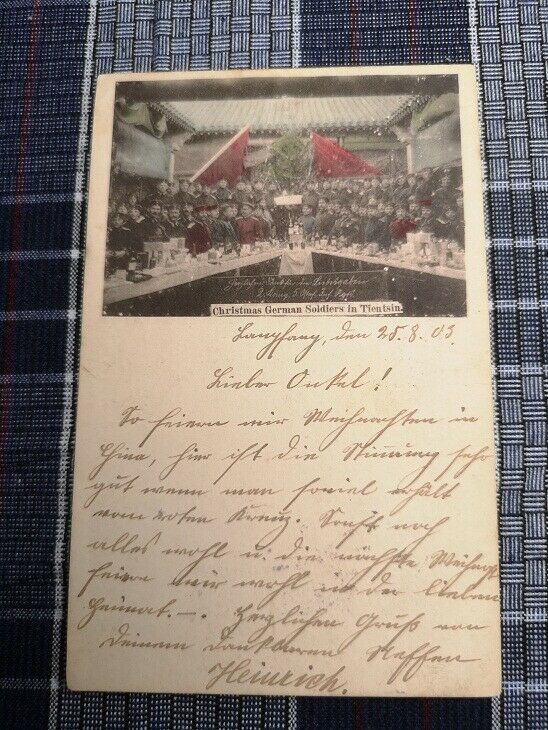 Christmas German Soldiers in Tientsin.
Langfang, den 25.8.03.
Lieber Onkel!
So feiern wir Weihnachten in
China, hier ist die Stimmung sehr
gut wenn man soviel erhält
vom roten Kreuz. Sonst noch
alles wohl u. die nächste Weihnacht
feiern wir wohl in der lieben
Heimat. –. Herzlichen Gruß von
Deinem dankbaren Neffen
Heinrich.